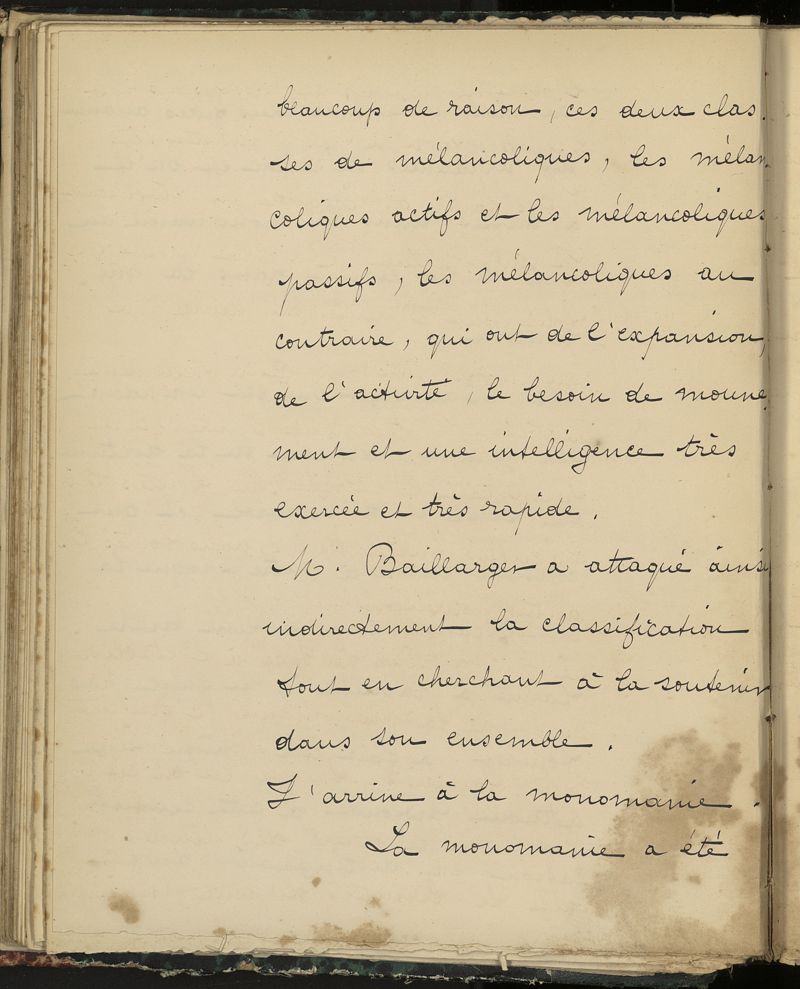 beaucoup de raison, ces deux clas
ses de mélancoliques, les mélan
coliques actifs et les mélancoliques
passifs, les mélancoliques au
contraire, qui ont de l'expansion,
de l'activité, le besoin de mouve
ment et une intelligence très
exercée et très rapide.
M. Baillarger a attaqué ainsi
indirectement la classification
tout en cherchant à la soutenir
dans son ensemble.
J'arrive à la monomanie.
La monomanie a été